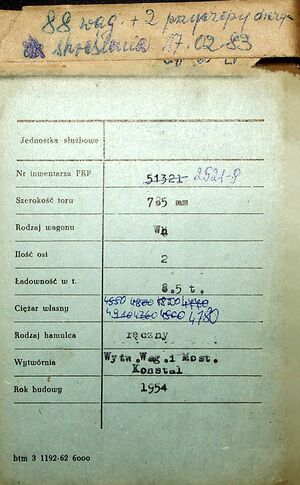 88 wag. + 2 przyczepy
skreślenia 17.02.83
Jednostka służbowe
Nr inwentarza PKP 51321 2521-9
Szerokość toru 785 mm
Rodzaj wagonu
Ilość osi 2
Ładowność w t. 8.5 t.
Ciężar własny 4780
Rodzaj hamulca ręczny
Wytwórnia Wytw.Wag.i Most. Konstal
Rok budowy 1954
btm 3 1192-62 6000